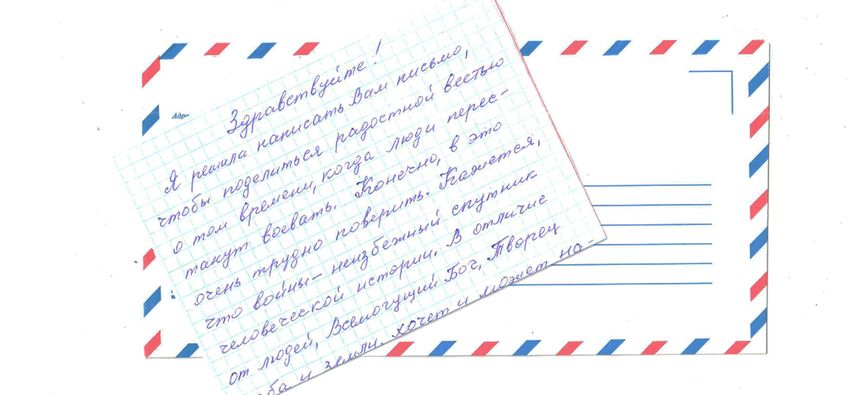 Адре
Здравствуйте!
Я решила написать Вам письмо,
чтобы поделиться радостной вестью
о том времени, когда люди перес-
танут воевать. Конечно, в это
очень трудно поверить. Кажется,
что войны – неизбежный спутник
человеческой истории. В отличие
от людей, Всемогущий Бог, Творец
ба и земли, хочет и может на-